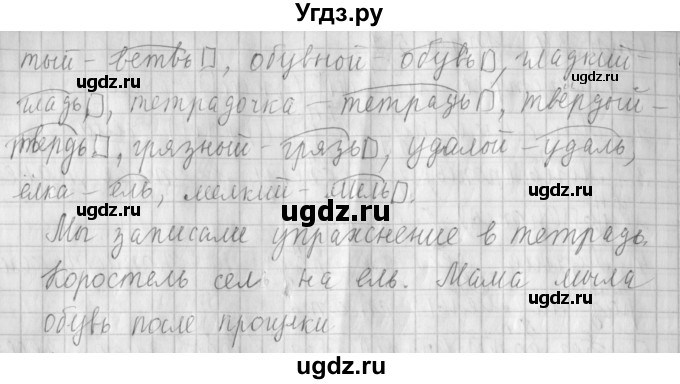 Угдз.ру
тый - ветвь□, обувной обувь□, гладкий -
гладь□, тетрадочка - тетрадь□, твёрдый -
твердь□, грязный - грязь□, удалой - удаль,
ёлка - ель, мелкий - мель□.
Мы записали упражнение в тетрадь.
Коростель сел на ель. Мама мыла
обувь после прогулки
ugdz.ru
ugdz.ru
ugdz.ru
ugdz.ru
ugdz.ru
ugdz.ru
ugdz.ru
ugdz.ru
ugdz.ru
ugdz.ru
ugdz.ru
ugdz.ru
ugdz.ru